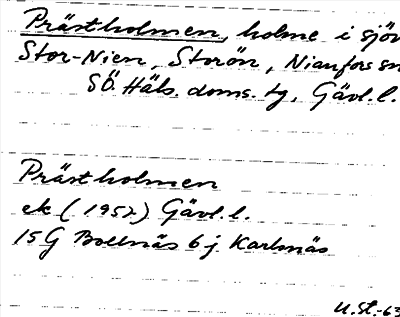 Prästholmen, holme i sjön
Stor-Nien, Storön, Nianfors sn
SÖ. Häls. doms. tg, Gävl. l.
Prästholmen
ek (1957) Gävl. l.
15G Bollnäs 6j Karlsnäs
U.St.-63